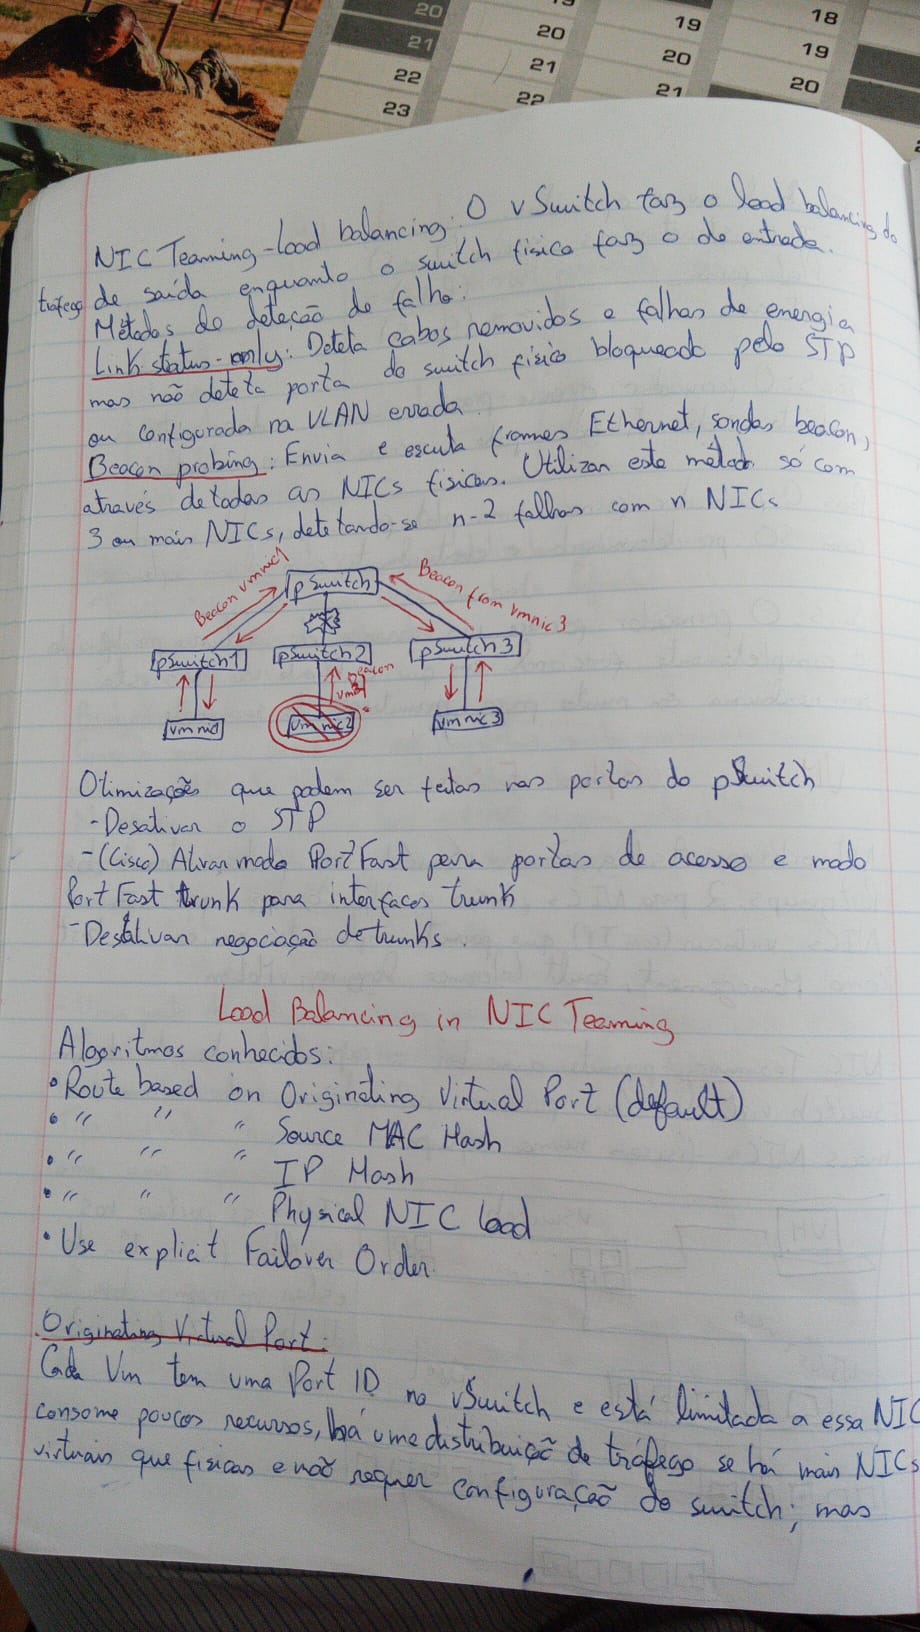 20
21
22
23
19
20
21
22
19
20
21
18
19
20
NIC Teaming - Load balancing: O vSwitch faz o load balancing do
tráfego de saída enquanto o switch físico faz o de entrada.
Métodos de deteção de falha:
Link status-only: Deteta cabos removidos e falhas de energia
mas não deteta porta do switch físico bloqueado pelo STP
ou configurada na VLAN errada.
Beacon probing: Envia e escuta frames Ethernet, sondas beacon,
através de todas as NICs físicas. Utilizar este método só com
3 ou mais NICs, detetando-se n-2 falhas com n NICs
Beacon vmnic1
pSwitch
Beacon from vmnic 3
pSwitch1
pSwitch2
pSwitch3
Beacon
vmnic2
vmnic3
Otimizações que podem ser feitas nas portas do pSwitch
- Desativar o STP
- (Cisco) Ativar modo PortFast para portas de acesso e modo
PortFast trunk para interfaces trunk
- Desativar negociação de trunks.
Load Balancing in NIC Teaming
Algoritmos conhecidos:
• Route based on Originating Virtual Port (default)
• " " " Source MAC Hash
• " " " IP Hash
• " " " Physical NIC load
• Use explicit Failover Order
Originating Virtual Port:
Cada Vm tem uma Port ID no vSwitch e está limitada a essa NIC
consome poucos recursos, há uma distribuição de tráfego se há mais NICs
virtuais que físicas e não requer configuração do switch; mas